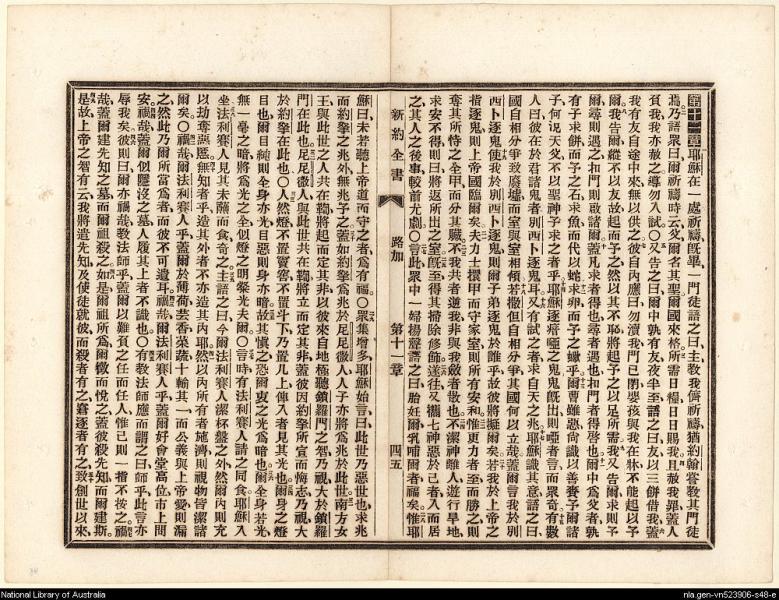 第十一章耶穌在一處祈禱旣畢一門徒語之曰主教我儕祈禱猶約翰嘗教其門徒
焉乃語衆曰爾祈禱時云父爾名其聖爾國來格所需日糧日日賜我且赦我罪蓋人
負我我亦赦之導勿入試○又吿之曰爾中孰有友夜半至語之曰友以三餅借我蓋
我有友自途中來無以供之彼自內應曰勿瀆我門已閉嬰孩與我在牀不能起以予
爾我吿爾縱不以友故起而予之然以其不恥將起予之以足所需我又吿爾求則予
爾尋則遇之扣門則啟諸爾蓋凡求者得也尋者遇也扣門者得啓也爾中爲父者孰
有子求餅而予之石求魚而代以蛇求卵而予之蠍乎爾曹雖惡尙識以善賚予爾諸
子何況天父不以聖神予求之者乎耶穌逐瘖啞之鬼鬼旣出則啞者言而衆奇有數
人曰彼在於君諸鬼者別西卜逐鬼耳又有試之者求自天之兆耶穌識其意語之曰
國自相分爭致廢墟而室與室相傾若撒但自相分爭其國何以立哉蓋爾言我於別
西卜逐鬼使我於別西卜逐鬼則爾子弟逐鬼於誰乎故彼將擬爾矣若我於上帝之
指逐鬼則上帝國臨爾矣夫力士擐甲而守家室則所有安和惟更力者至而勝之則
奪其所恃之全甲而分其贓不我共者逆我非與我斂者散也不潔神離人遊行旱地
求安不得則曰將返所出之室旣至得其掃除修飾遂往又攜七神惡於己者入而居
之其人之後事較前尤劇○言此衆中一婦揚聲語之曰胎妊爾乳哺爾者福矣惟耶
新約全書 路加 第十一章 四五
穌曰未若聽上帝道而守之者爲有福○衆集增多耶穌始言曰此世乃惡世也求兆
而約拏之兆外無兆予之蓋如約拏爲兆於尼尼微人人子亦將爲兆於此世南方女
王與此世之人共在鞫將起而定其非以彼來自地極聽鎖羅門之智乃視大於鎖羅
門在此也尼尼微人與此世共在鞫將立而定其非蓋彼因約拏所宣而悔志乃視大
於約拏在此也○人然燈不置竇窖不置斗下乃置几上俾入者見其光也爾身之燈
目也爾目純則全身亦光目惡則身亦暗故其愼之恐爾衷之光爲暗也爾全身若光
無一毫之暗將爲光之全似燈之明粲光夫爾○言時有法利賽人請之同食耶穌入
坐法利賽人見其未蘸而食奇之主語之曰今爾法利賽人潔杯盤之外然爾內則充
以劫奪慝無知者乎造其外者不亦造其內耶然以內所有者施濟則視物皆潔諸
爾矣○禍哉爾法利賽人乎蓋爾於薄荷芸香菜蔬十輸其一而公義與上帝愛則漏
之然此乃爾所當爲者而彼不可遺耳禍哉爾法利賽人乎蓋爾好會堂高位市上問
安禍哉蓋爾似隱沒之墓人履其上者不識也○有教法師應而謂之曰師乎此言亦
辱我矣彼則曰爾亦禍哉教法師乎蓋爾以難負之任而任人惟己則一指不按之禍
哉蓋爾建先知之墓而爾祖殺之如是爾祖所爲爾徵而悅之蓋彼殺先知而爾建斯
是故上帝之智有云我將遣先知及使徒就彼而殺者有之窘逐者有之致創世以來
National Library of Australia
nla.gen-vn523906-s48-e